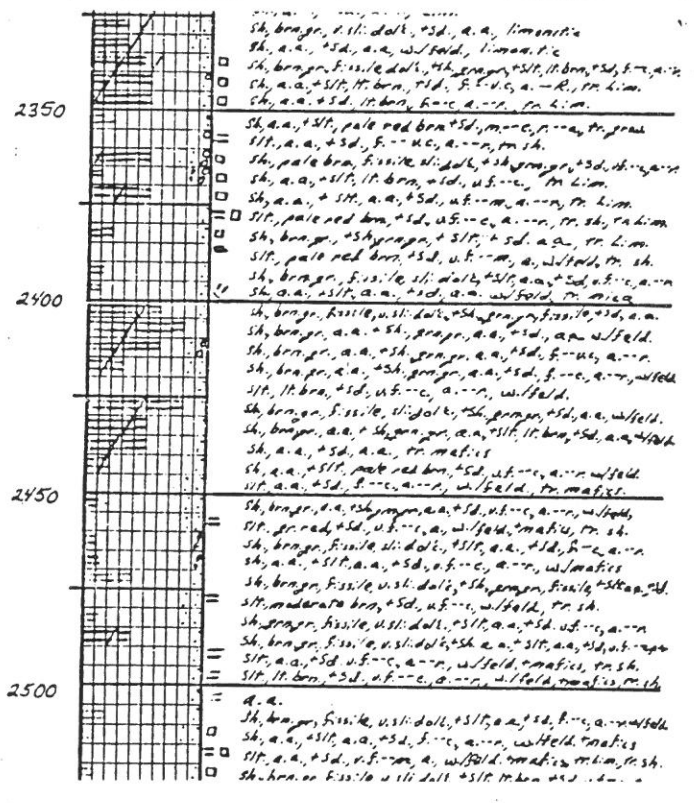 sh, brn.gr, v.sli.dolc, +sd., a.a., limonitic
sh, a.a., +sd., a.a, w/feld., limonitic
sh, brn.gr, fissile, dolc., +sh, grn.gr, +slt, lt.brn, +sd, f.--c, a.--r.
sh, a.a., +slt, lt. brn, +sd, f.--v.c, a.--R., tr. Lim.
sh, a.a., +sd. lt. brn, f.--c, a.--r. tr. Lim.
2350
sh, a.a., +slt, pale red brn +sd., m.--c, r.--a, tr. grav
slt, a.a., +sd., f.--v.c, a.--r, tr. sh.
sh, pale brn, fissile, sli.dolc, +sh, grn.gr, +sd., vf.--c, a.--r
sh, a.a., +slt, lt. brn, +sd, v.f.--c, tr. Lim.
sh, a.a., +slt, a.a., +sd, v.f.--m, a.--r, tr. Lim.
slt, pale red brn, +sd, v.f.--c, a.--r, tr. sh, tr. Lim.
sh, brn.gr, +sh, grn.gr, +slt, +sd. a.a., tr. Lim.
slt, pale red brn, +sd, v.f.--m, a, w/feld, tr. sh.
sh, brn.gr, fissile, sli.dolc, +slt, a.a, +sd, v.f.--c, a.--r
2400
sh, a.a., +slt, a.a., +sd, a.a. w/feld, tr. mica
sh, brn.gr, fissile, v.sli.dolc, +sh, grn.gr, fissile, +sd, a.a.
sh, brn.gr, a.a. +sh, grn.gr, a.a., +sd, a.a. w/feld.
sh, brn.gr, a.a., +sh, grn.gr, a.a., +sd, f.--v.c, a.--r.
sh, brn.gr, a.a., +sh, grn.gr, a.a., +sd, f.--c, a.--r, w/feld
slt, lt. brn, +sd, v.f.--c, a.--r, w/feld.
sh, brn.gr, fissile, sli.dolc, +sh, grn.gr, +sd, a.a. w/feld.
sh, brn.gr, a.a. +sh, grn.gr, a.a, +slt, lt. brn, +sd, a.a, w/feld
sh, a.a., +sd, a.a., tr. mafics
sh, a.a., +slt, pale red brn, +sd, v.f.--c, a.--r. w/feld
slt, a.a., +sd, f.--c, a.--r, w/feld, tr. mafics.
2450
sh, brn.gr, a.a, +sh, grn.gr, a.a, +sd, v.f.--c, a.--r, w/feld,
slt, gr. red, +sd, v.f.--c, a, w/feld, +mafics, tr. sh.
sh, brn.gr, fissile, sli.dolc, +slt, a.a., +sd, f.--c, a.--r.
sh, a.a., +slt, a.a., +sd, v.f.--c, a.--r, w/mafics
sh, brn.gr, fissile, v.sli.dolc, +sh, grn.gr, fissile, +slt
slt, moderate brn, +sd, v.f.--c, w/feld, tr. sh.
sh, grn.gr, fissile, v.sli.dolc, +slt, a.a, +sd. v.f.--c, a.--r
sh, brn.gr, fissile, v.sli.dolc, +sh, a.a., +slt, a.a, +sd, v.f.
slt, a.a., +sd. v.f.--c, a.--r, w/feld, +mafics, tr. sh.
slt, lt. brn, +sd, v.f.--c, a.--r, w/feld, +mafics, tr. sh
2500
a.a.
sh, brn.gr, fissile, v.sli.dolc, +slt, a.a, +sd, f.--c, a.--r. w/feld
sh, a.a., +slt, a.a, +sd, f.--c, a.--r, w/feld. +mafics
slt, a.a., +sd, v.f.--m, a, w/feld. +mafics, tr. lim, tr. sh.
sh, brn.gr, fissile, v.sli.dolc, +slt, lt. brn, +sd